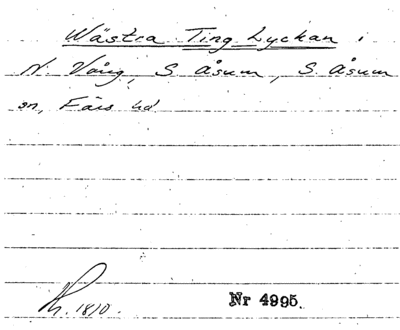 Wästra Ting Lyckan i
N. Vång, S. Åsum, S. Åsum
sn, Färs hd
1810.
Nr 4995.